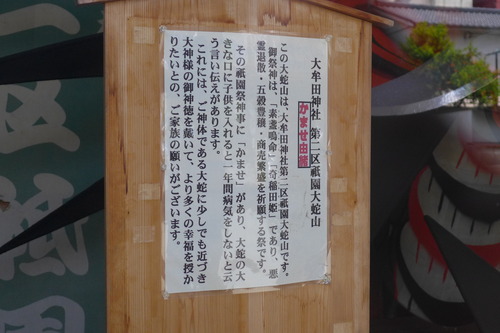 大牟田神社 第二区祇園大蛇山
かませ由来
この大蛇山は、大牟田神社第二区祇園大蛇山です。
御祭神は、「素盞嗚命」「奇稲田姫」であり、悪
霊退散・五穀豊穣・商売繁盛を祈願する祭です。
その祇園祭神事に「かませ」があり、大蛇の大
きな口に子供を入れると一年間病気をしないと云
う言い伝えがあります。
これには、ご神体である大蛇に少しでも近づき
大神様の御神徳を戴いて、より多くの幸福を授か
りたいとの、ご家族の願いがございます。